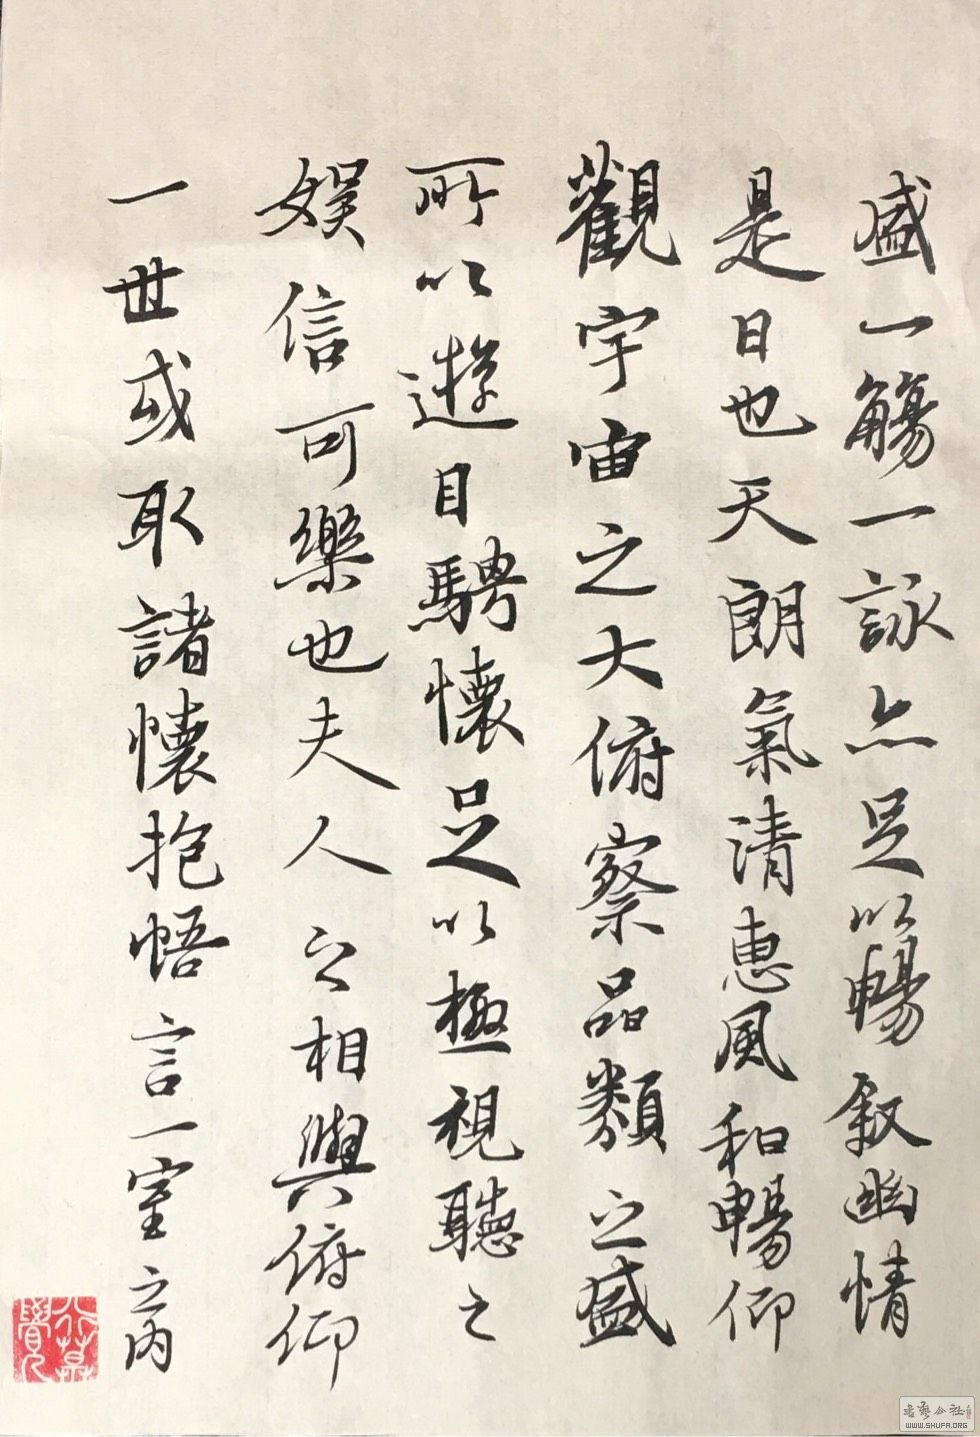 盛一觴一詠亦足以暢叙幽情
是日也天朗氣清惠風和暢仰
觀宇宙之大俯察品類之盛
所以遊目騁懷足以極視聽之
娱信可樂也夫人之相與俯仰
一世或取諸懷抱悟言一室之内
WWW.SHUFA.ORG